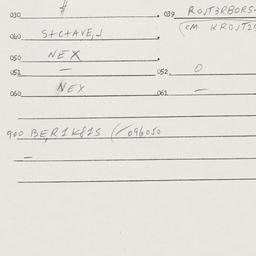 030 $ 039 ROJT3RBORS-
(CM KROJT2
040 S+C+AVE,J
050 NEX
051 — 052. 0
060 NEX 061 —
900 BER1K81S (✓096050
—